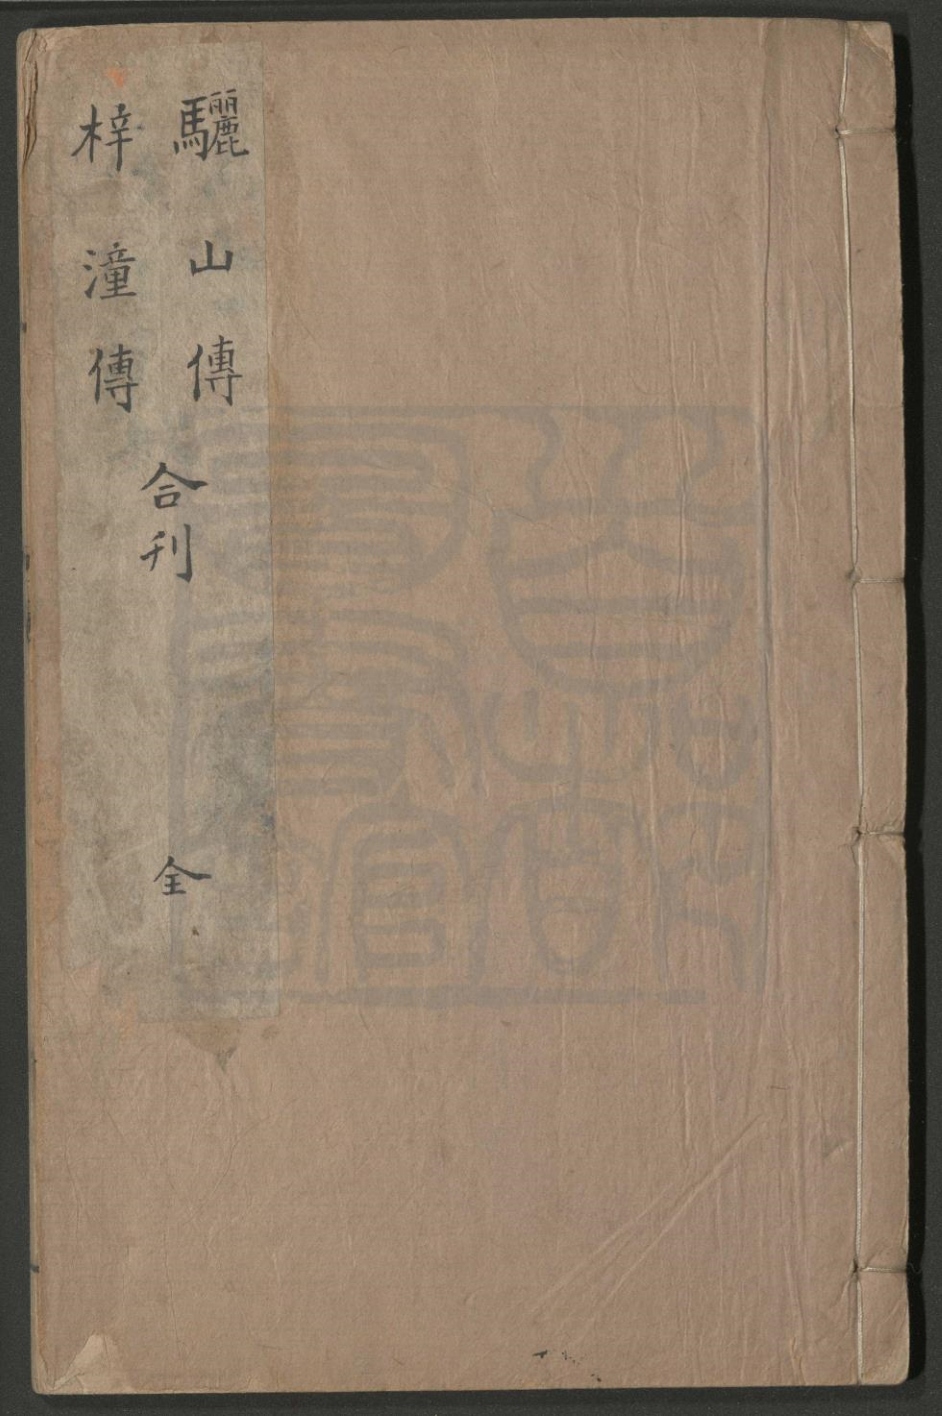 驪山傳
梓潼傳
合刊
全